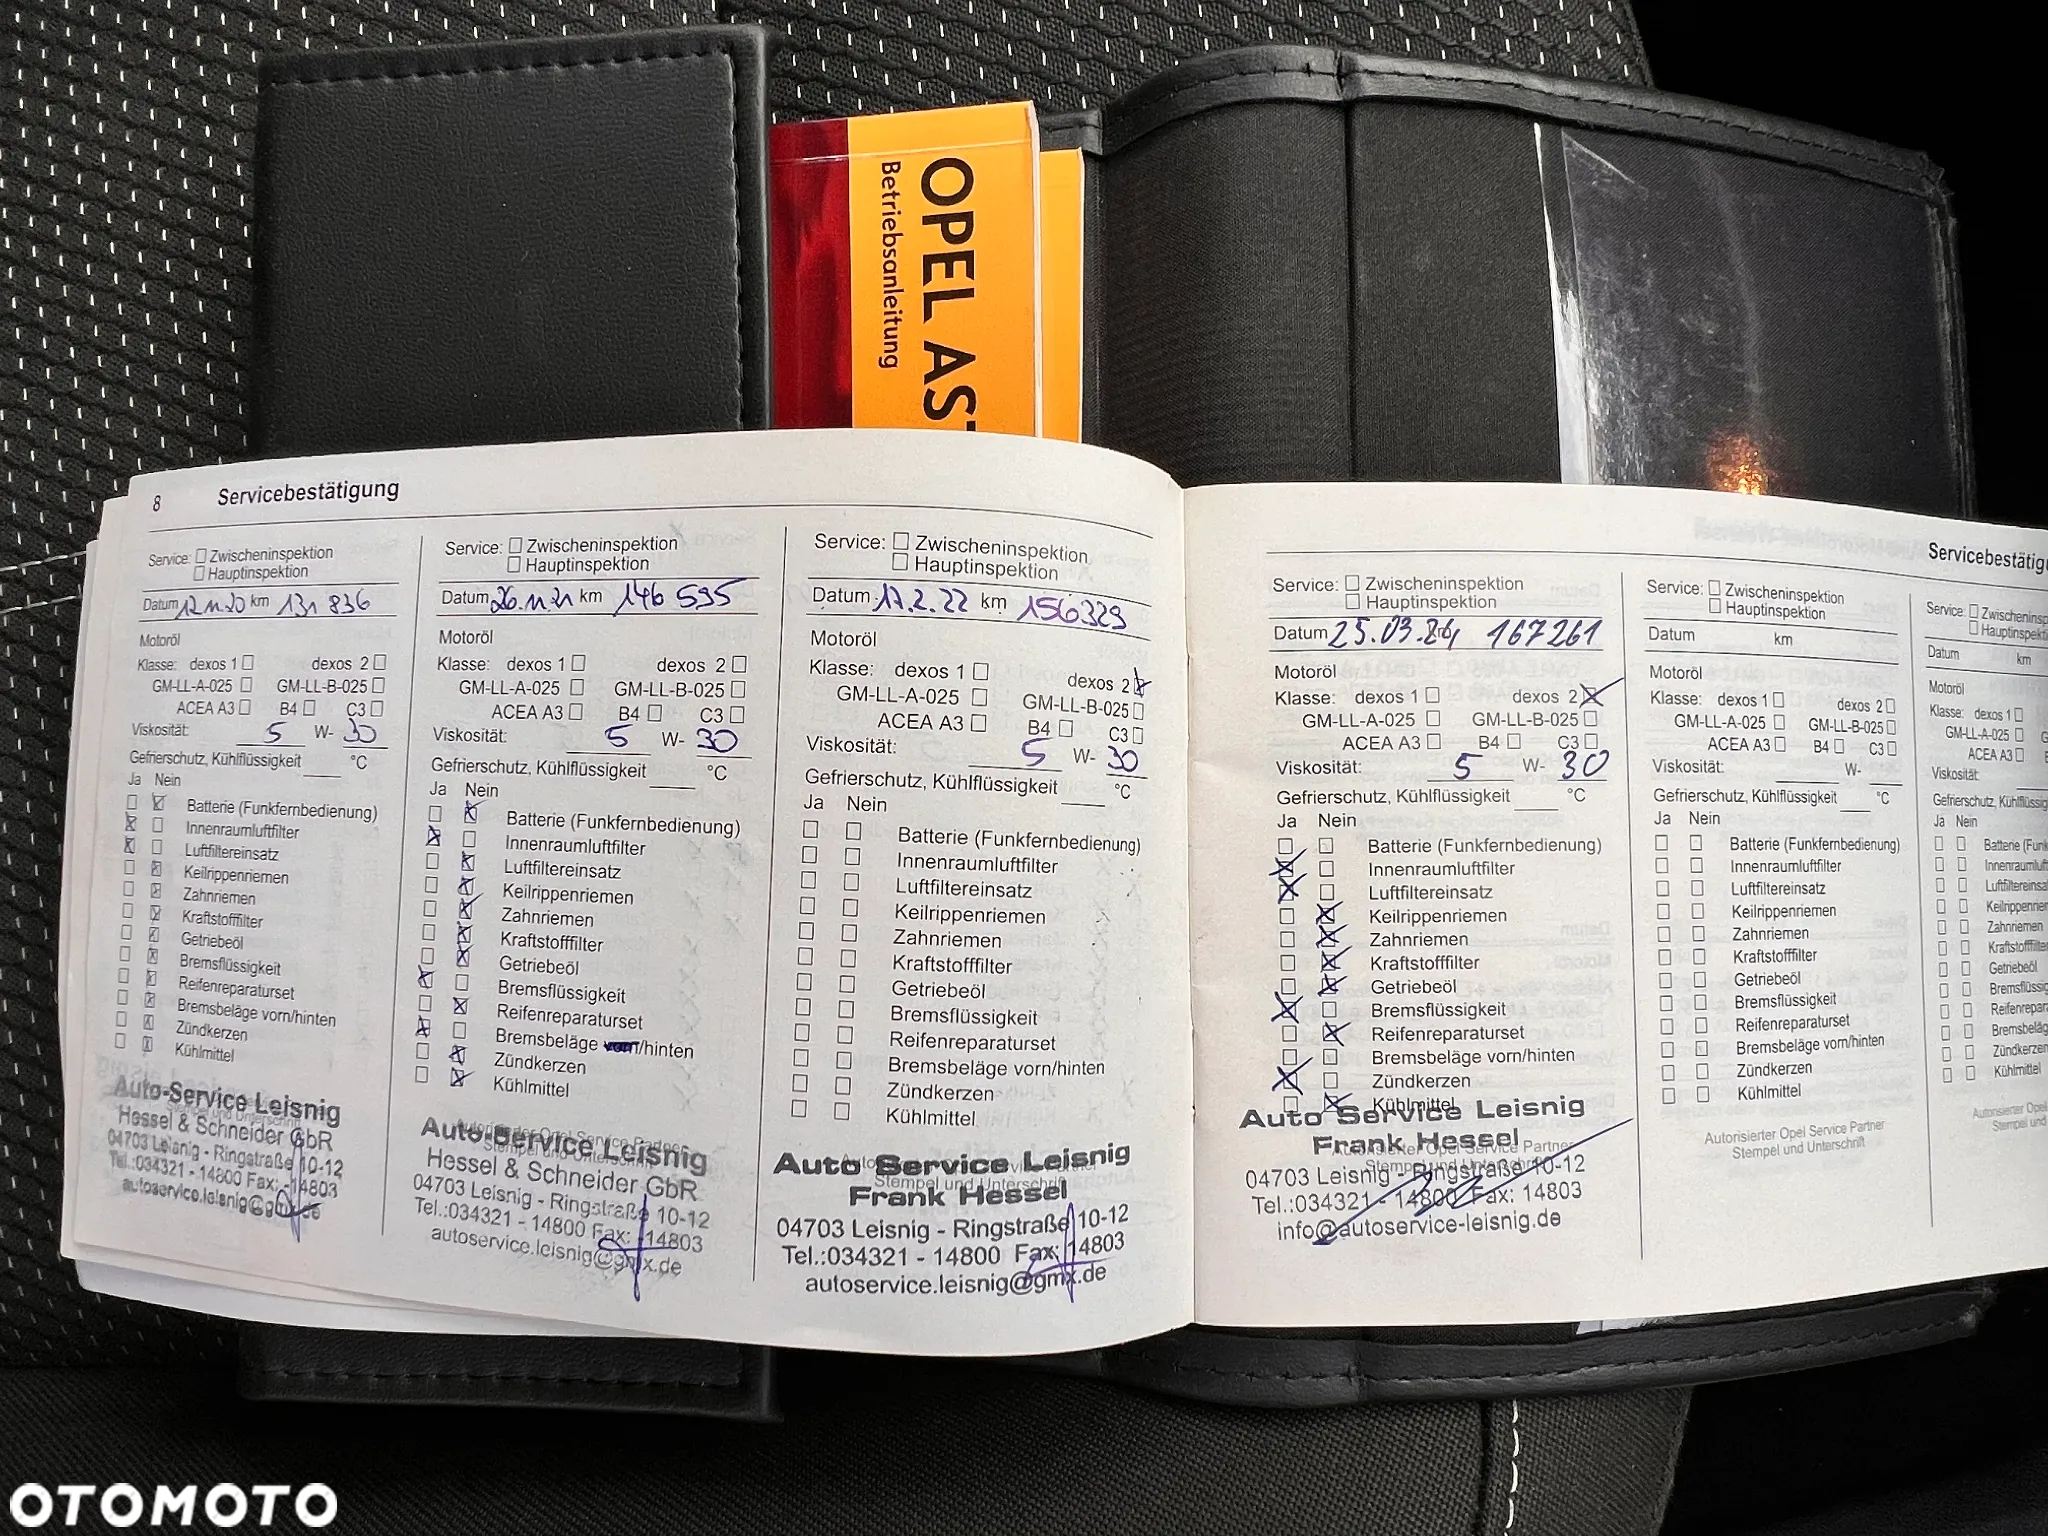 OPEL AST
Betriebsanleitung
8 Servicebestätigung
Service: Zwischeninspektion
Hauptinspektion
Datum 12.11.20 km 131 836
Motoröl
Klasse: dexos 1 dexos 2
GM-LL-A-025 GM-LL-B-025
ACEA A3 B4 C3
Viskosität: 5 W- 30
Gefrierschutz, Kühlflüssigkeit °C
Ja Nein
Batterie (Funkfernbedienung)
Innenraumluftfilter
Luftfiltereinsatz
Keilrippenriemen
Zahnriemen
Kraftstofffilter
Getriebeöl
Bremsflüssigkeit
Reifenreparaturset
Bremsbeläge vorn/hinten
Zündkerzen
Kühlmittel
Auto-Service Leisnig
Hessel & Schneider GbR
04703 Leisnig - Ringstraße 10-12
Tel.:034321 - 14800 Fax: -14803
autoservice.leisnig@gmx.de
Service: Zwischeninspektion
Hauptinspektion
Datum 26.11.21 km 146 595
Motoröl
Klasse: dexos 1 dexos 2
GM-LL-A-025 GM-LL-B-025
ACEA A3 B4 C3
Viskosität: 5 W- 30
Gefrierschutz, Kühlflüssigkeit °C
Ja Nein
Batterie (Funkfernbedienung)
Innenraumluftfilter
Luftfiltereinsatz
Keilrippenriemen
Zahnriemen
Kraftstofffilter
Getriebeöl
Bremsflüssigkeit
Reifenreparaturset
Bremsbeläge vorn/hinten
Zündkerzen
Kühlmittel
Autorisierter Opel Service Partner
Stempel und Unterschrift
Auto-Service Leisnig
Hessel & Schneider GbR
04703 Leisnig - Ringstraße 10-12
Tel.:034321 - 14800 Fax: 14803
autoservice.leisnig@gmx.de
Service: Zwischeninspektion
Hauptinspektion
Datum 17.2.22 km 156329
Motoröl
Klasse: dexos 1 dexos 2
GM-LL-A-025 GM-LL-B-025
ACEA A3 B4 C3
Viskosität: 5 W- 30
Gefrierschutz, Kühlflüssigkeit °C
Ja Nein
Batterie (Funkfernbedienung)
Innenraumluftfilter
Luftfiltereinsatz
Keilrippenriemen
Zahnriemen
Kraftstofffilter
Getriebeöl
Bremsflüssigkeit
Reifenreparaturset
Bremsbeläge vorn/hinten
Zündkerzen
Kühlmittel
Auto Service Leisnig
Stempel und Unterschrift
Frank Hessel
04703 Leisnig - Ringstraße 10-12
Tel.:034321 - 14800 Fax: 14803
autoservice.leisnig@gmx.de
Servicebestätigu
Service: Zwischeninspektion
Hauptinspektion
Datum 25.03.24 167261
Motoröl
Klasse: dexos 1 dexos 2
GM-LL-A-025 GM-LL-B-025
ACEA A3 B4 C3
Viskosität: 5 W- 30
Gefrierschutz, Kühlflüssigkeit °C
Ja Nein
Batterie (Funkfernbedienung)
Innenraumluftfilter
Luftfiltereinsatz
Keilrippenriemen
Zahnriemen
Kraftstofffilter
Getriebeöl
Bremsflüssigkeit
Reifenreparaturset
Bremsbeläge vorn/hinten
Zündkerzen
Kühlmittel
Auto Service Leisnig
Frank Hessel
Autorisierter Opel Service Partner
Stempel und Unterschrift
04703 Leisnig - Ringstraße 10-12
Tel.:034321 - 14800 Fax: 14803
info@autoservice-leisnig.de
Service: Zwischeninspektion
Hauptinspektion
Datum km
Motoröl
Klasse: dexos 1 dexos 2
GM-LL-A-025 GM-LL-B-025
ACEA A3 B4 C3
Viskosität: W-
Gefrierschutz, Kühlflüssigkeit °C
Ja Nein
Batterie (Funkfernbedienung)
Innenraumluftfilter
Luftfiltereinsatz
Keilrippenriemen
Zahnriemen
Kraftstofffilter
Getriebeöl
Bremsflüssigkeit
Reifenreparaturset
Bremsbeläge vorn/hinten
Zündkerzen
Kühlmittel
Autorisierter Opel Service Partner
Stempel und Unterschrift
Service: Zwischenins
Hauptinspekti
Datum km
Motoröl
Klasse: dexos 1
GM-LL-A-025 G
ACEA A3 B
Viskosität:
Gefrierschutz, Kühlflüssig
Ja Nein
Batterie (Funk
Innenraumluft
Luftfiltereinsa
Keilrippenrien
Zahnriemen
Kraftstofffilte
Getriebeöl
Bremsflüssig
Reifenrepara
Bremsbeläge
Zündkerzen
Kühlmittel
Autorisierter Opel
Stempel und
OTOMOTO